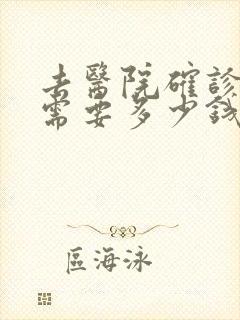 去醫院確診
需要多少錢
區海泳